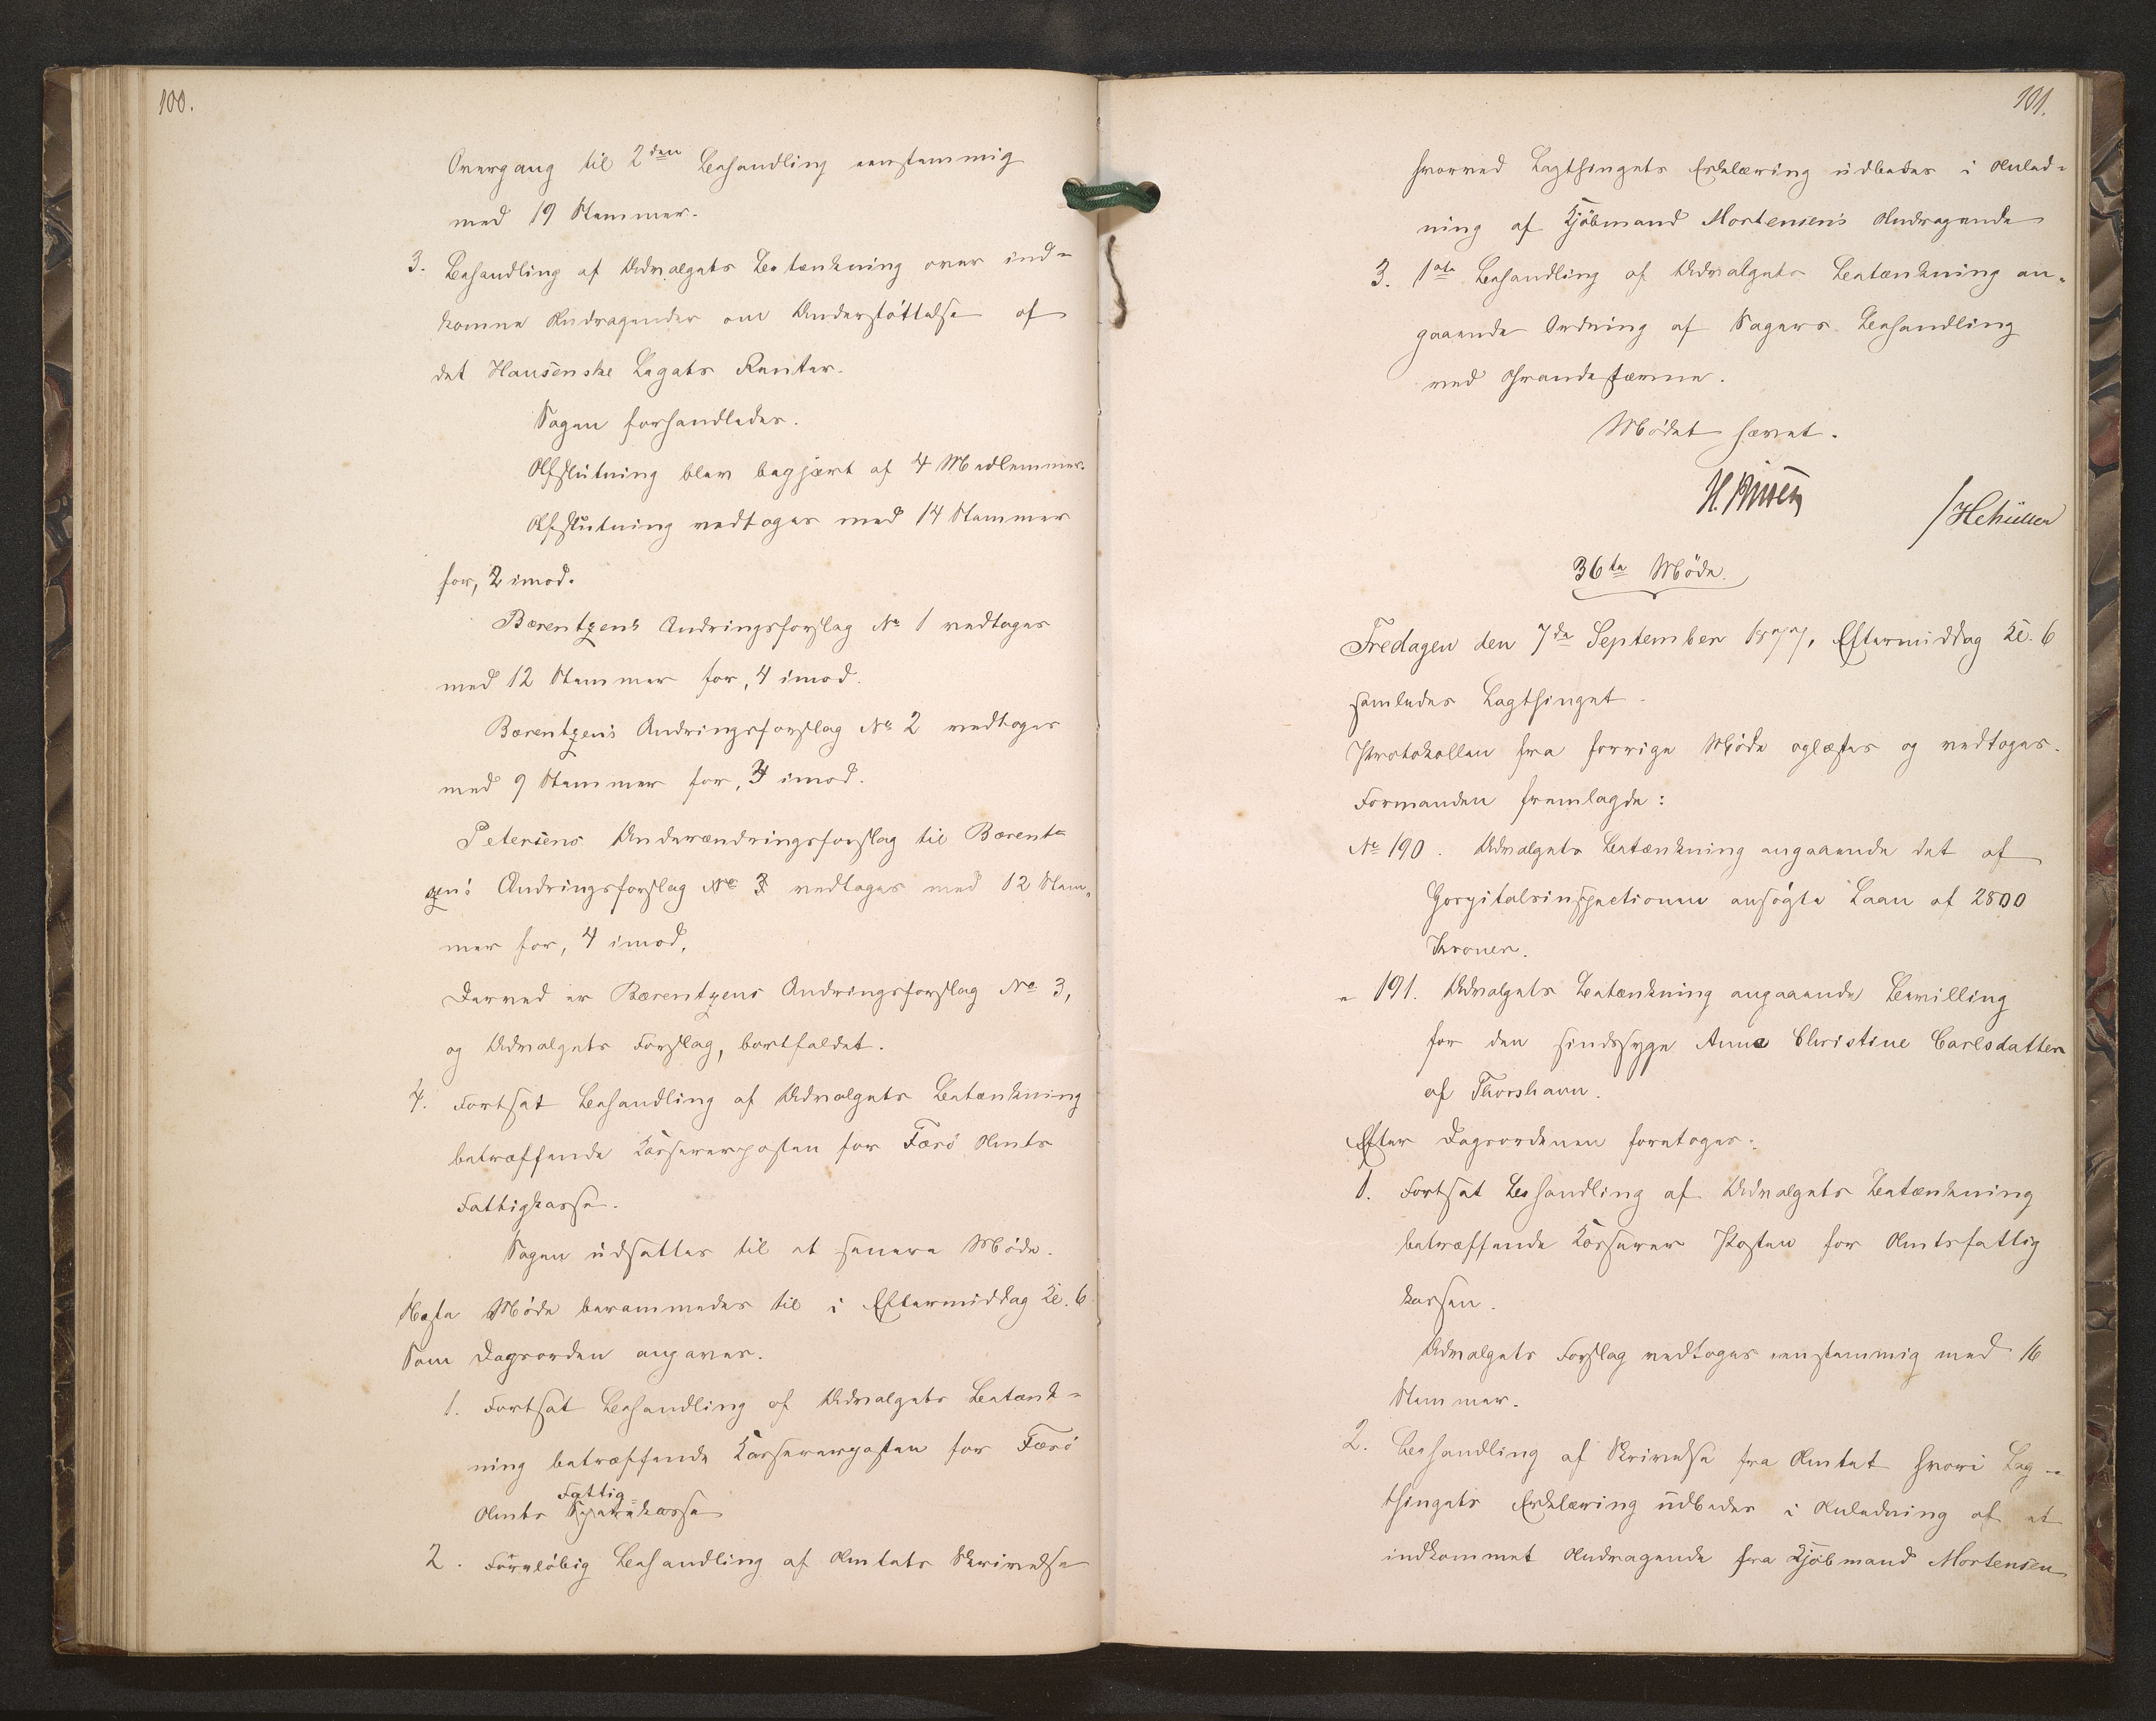 100.
Overgang til 2den Behandling eenstemmig
med 19 Stemmer.
3. Behandling af Udvalgets Betænkning over ind-
komne Andragender om Understøttelse af
det Hansenske Legats Renter.
Sagen forhandledes.
Afslutning blev begjært af 4 Medlemmer.
Afslutning vedtoges med 14 Stemmer
for, 2 imod.
Bærentzens Ændringsforslag No 1 vedtoges
med 12 Stemmer for, 4 imod.
Bærentzens Ændringsforslag No 2 vedtoges
med 9 Stemmer for, imod.
Petersens Underændringsforslag til Bærent-
zens Ændringsforslag No 3 vedtoges med 12 Stem-
mer for, 4 imod.
Derved er Bærentzens Ændringsforslag No 3,
og Udvalgets Forslag, bortfaldet.
4. Fortsat Behandling af Udvalgets Betænkning
betræffende Kassererposten for Færø Amts
Fattigkasse.
Sagen udsattes til et senere Møde.
Næste Møde berammedes til i Eftermiddag Kl. 6
Som Dagsorden angaves.
1. Fortsat Behandling af Udvalgets Betænk-
ning betræffende Kassererposten for Færø
Fattig
Amts Sparekasse
2. Foreløbig Behandling af Amtets Skrivelse
101.
hvorved Lagthingets Erklæring udbedes i Anled-
ning af Kjøbmand Mortensens Andragende
3. 1ste Behandling af Udvalgets Betænkning an-
gaaende Ordning af Sagers Behandling
ved Grandestævne.
Mødet hævet.
H. Finsen
/HCMüller
36te Møde.
Fredagen den 7de September 1877, Eftermiddag Kl. 6
samledes Lagthinget.
Protokollen fra forrige Møde oplæstes og vedtoges.
Formanden fremlagde:
No 190. Udvalgets Betænkning angaaende det af
Hospitalsinspectionen ansøgte Laan af 2800
Kroner.
" 191. Udvalgets Betænkning angaaende Bevilling
for den sindssyge Anne Christine Carlsdatter
af Thorshavn.
Efter Dagsordenen foretoges:
1. Fortsat Behandling af Udvalgets Betænkning
betræffende Kasserer Posten for Amtsfattig
kassen.
Udvalgets Forslag vedtoges eenstemmig med 16
Stemmer.
2. Behandling af Skrivelse fra Amtet hvori Lag-
thingets Erklæring udbedes i Anledning af et
indkommet Andragende fra Kjøbmand Mortensen